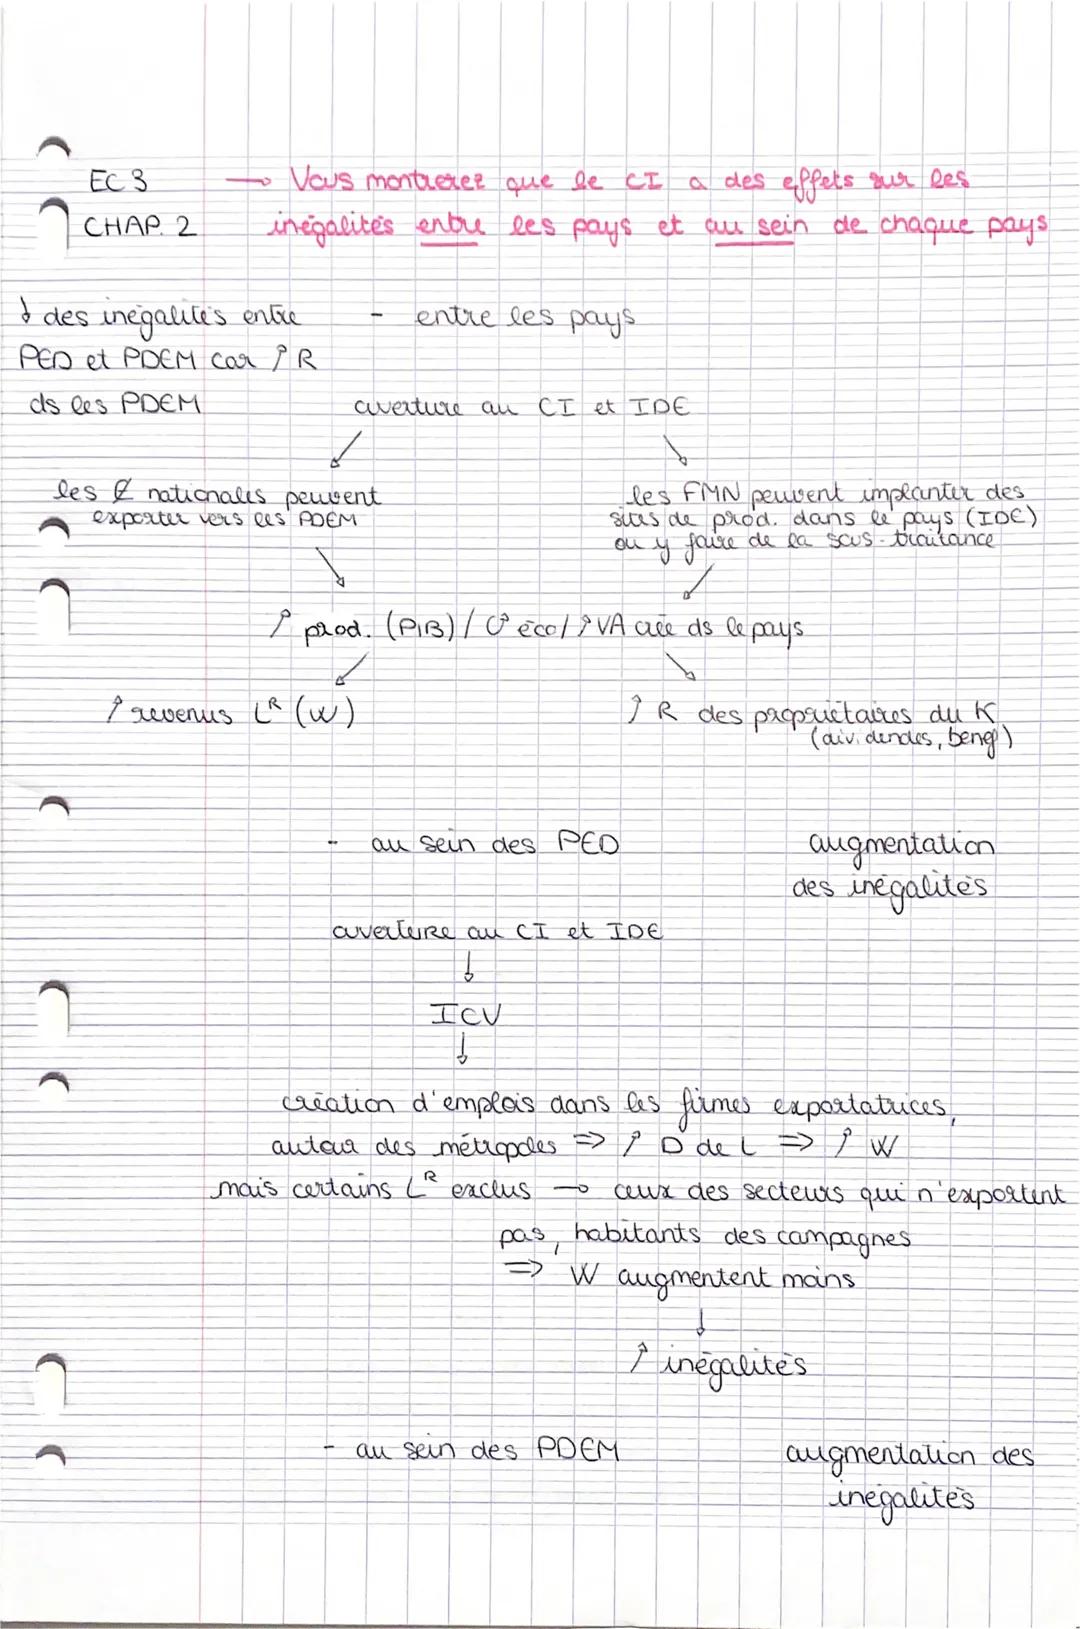 EC 3 → Vous montrerez que le CI a des effets sur les
CHAP. 2 inégalités entre les pays et au sein de chaque pays
↓ des inégalités entre - entre les pays
PED et PDEM car ↑ R
ds les PDEM ouverture au CI et IDE
les E nationales peuvent
exporter vers les PDEM
les FMN peuvent implanter des
sites de prod. dans le pays (IDE)
ou y faire de la sous-traitance
↑ prod. (PIB) / C éco / ↑ VA crée ds le pays
↑ revenus LR (W) ↑ R des propriétaires du K
(dividendes, bénef)
- au sein des PED augmentation
des inégalités
ouverture au CI et IDE
↓
ICV
↓
création d'emplois dans les firmes exportatrices,
autour des métropoles => ↑ D de L => ↑ W
mais certains LR exclus → ceux des secteurs qui n'exportent
pas, habitants des campagnes
=> W augmentent moins
↓
↑ inégalités
- au sein des PDEM augmentation des
inégalités